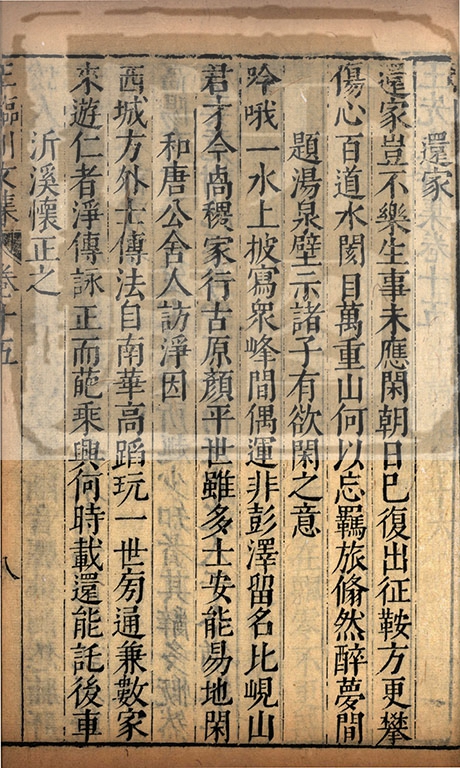 還家
還家豈不樂生事未應閑朝日已復出征鞍方更攀
傷心百道水閡目萬重山何以忘羈旅翛然醉夢間
題湯泉壁示諸子有欲閑之意
吟哦一水上披寫衆峰間偶運非彭澤留名比峴山
君才今卨稷家行古原顏平世雖多士安能易地閑
和唐公舍人訪淨因
西城方外士傳法自南華高蹈玩一世旁通兼數家
來遊仁者淨傳詠正而葩乘興何時載還能託後車
沂溪懷正之
王臨川文集 卷十五 八